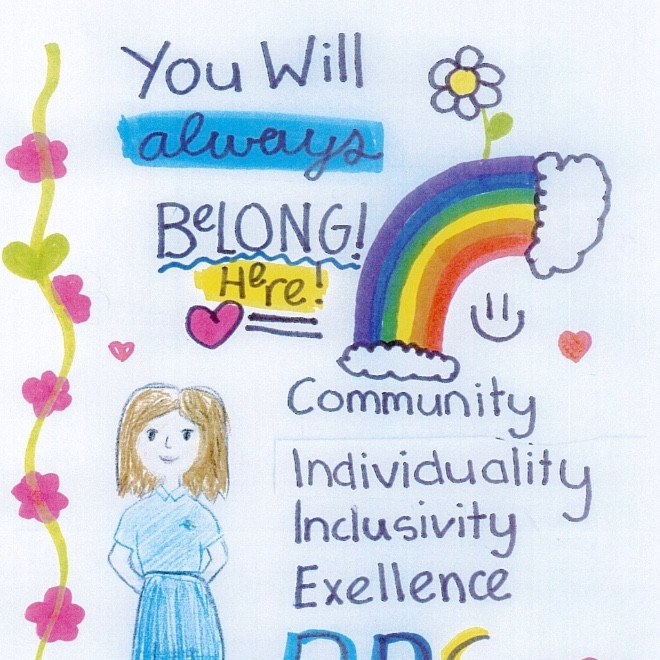 You Will
always
BeLONG!
Here!
Community
Individuality
Inclusivity
Exellence